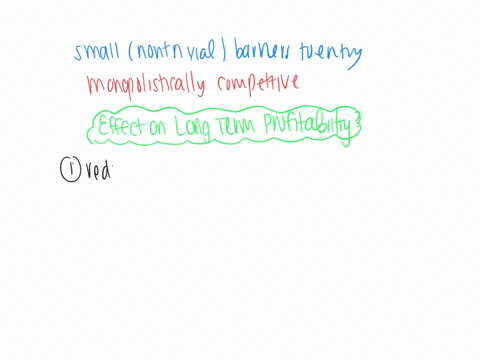 small (nontrivial) barriers to entry
monopolistically compettive
Effect on Long Term Profitability
① red